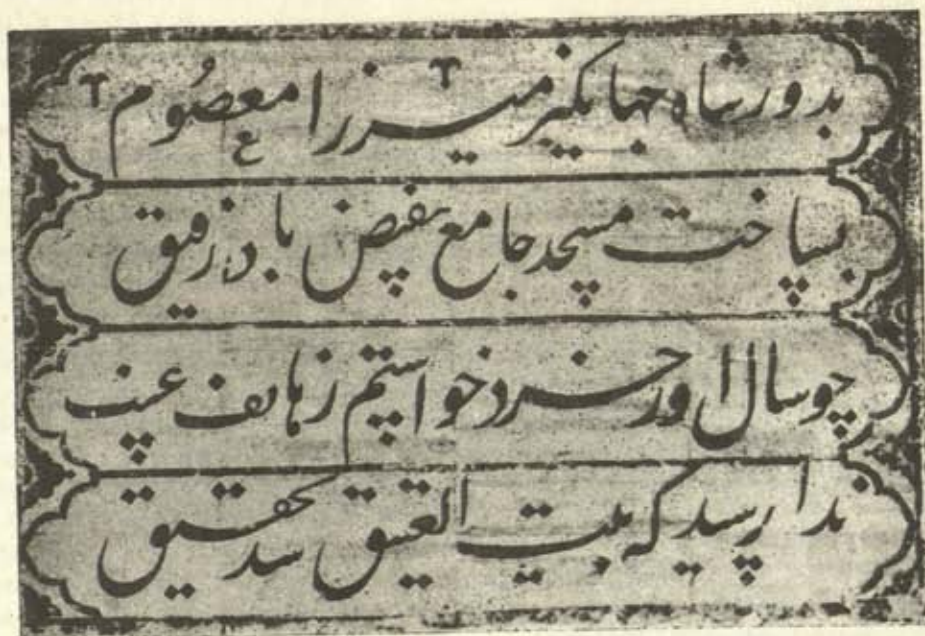 بدور شاه جهانگیر میرزا معصوم
بساخت مسجد جامع بفیض باد رفیق
چو سال او ز خرد خواستم ز هاتف غیب
ندا رسید که بیت العتیق شد تحقیق